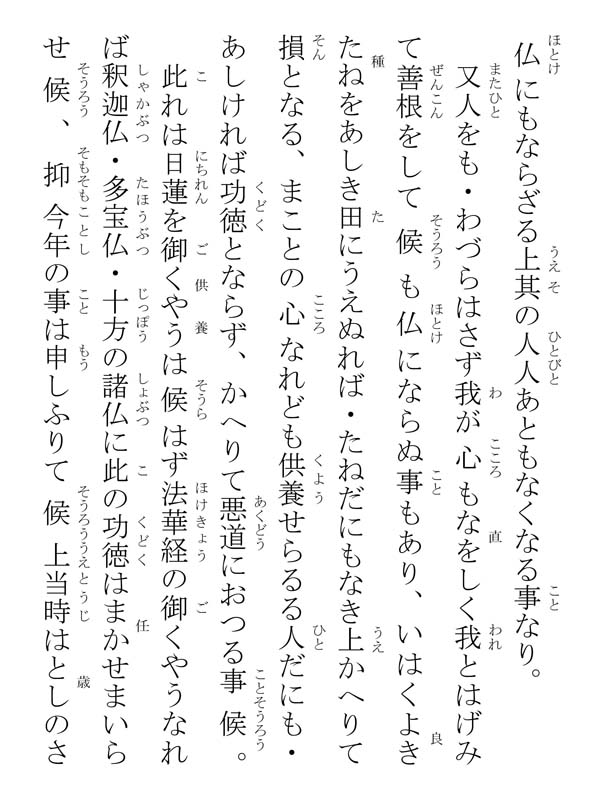 仏にもならざる上其の人人あともなくなる事なり。
又人をも・わづらはさず我が心もなをしく我とはげみ
て善根をして候も仏にならぬ事もあり、いはくよき
たねをあしき田にうえぬれば・たねだにもなき上かへりて
損となる、まことの心なれども供養せらるる人だにも・
あしければ功徳とならず、かへりて悪道におつる事候。
此れは日蓮を御くやうは候はず法華経の御くやうなれ
ば釈迦仏・多宝仏・十方の諸仏に此の功徳はまかせまいら
せ候、抑今年の事は申しふりて候上当時はとしのさ